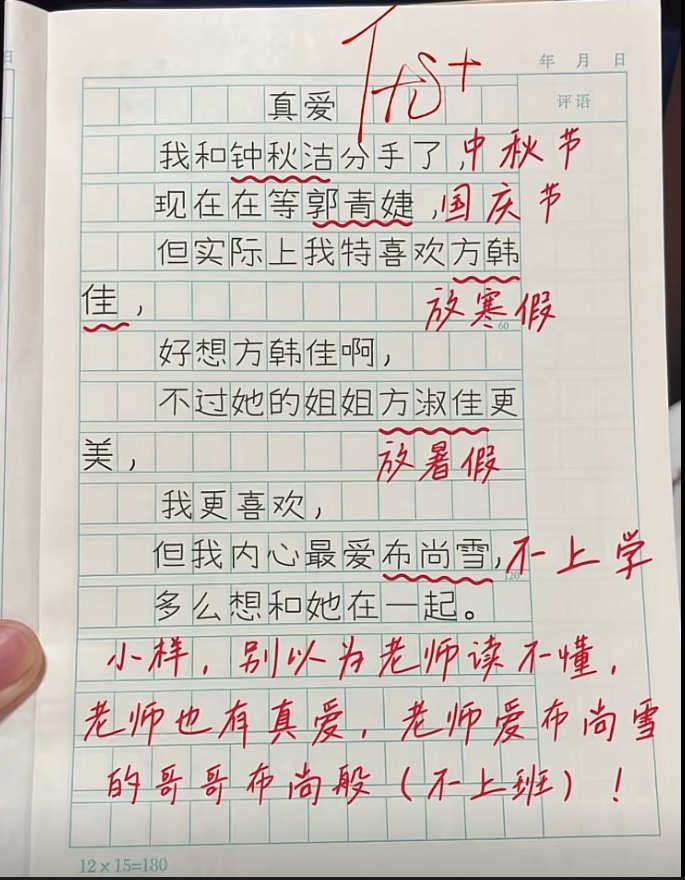 优+
年 月 日
评语
真爱
我和钟秋洁分手了,中秋节
现在在等郭青婕,国庆节
但实际上我特喜欢方韩
佳,
放寒假
60
好想方韩佳啊,
不过她的姐姐方淑佳更
美,
放暑假
我更喜欢,
但我内心最爱布尚雪,不上学
120
多么想和她在一起。
小样,别以为老师读不懂,
老师也有真爱,老师爱布尚雪
的哥哥布尚般(不上班)!
12×15=180